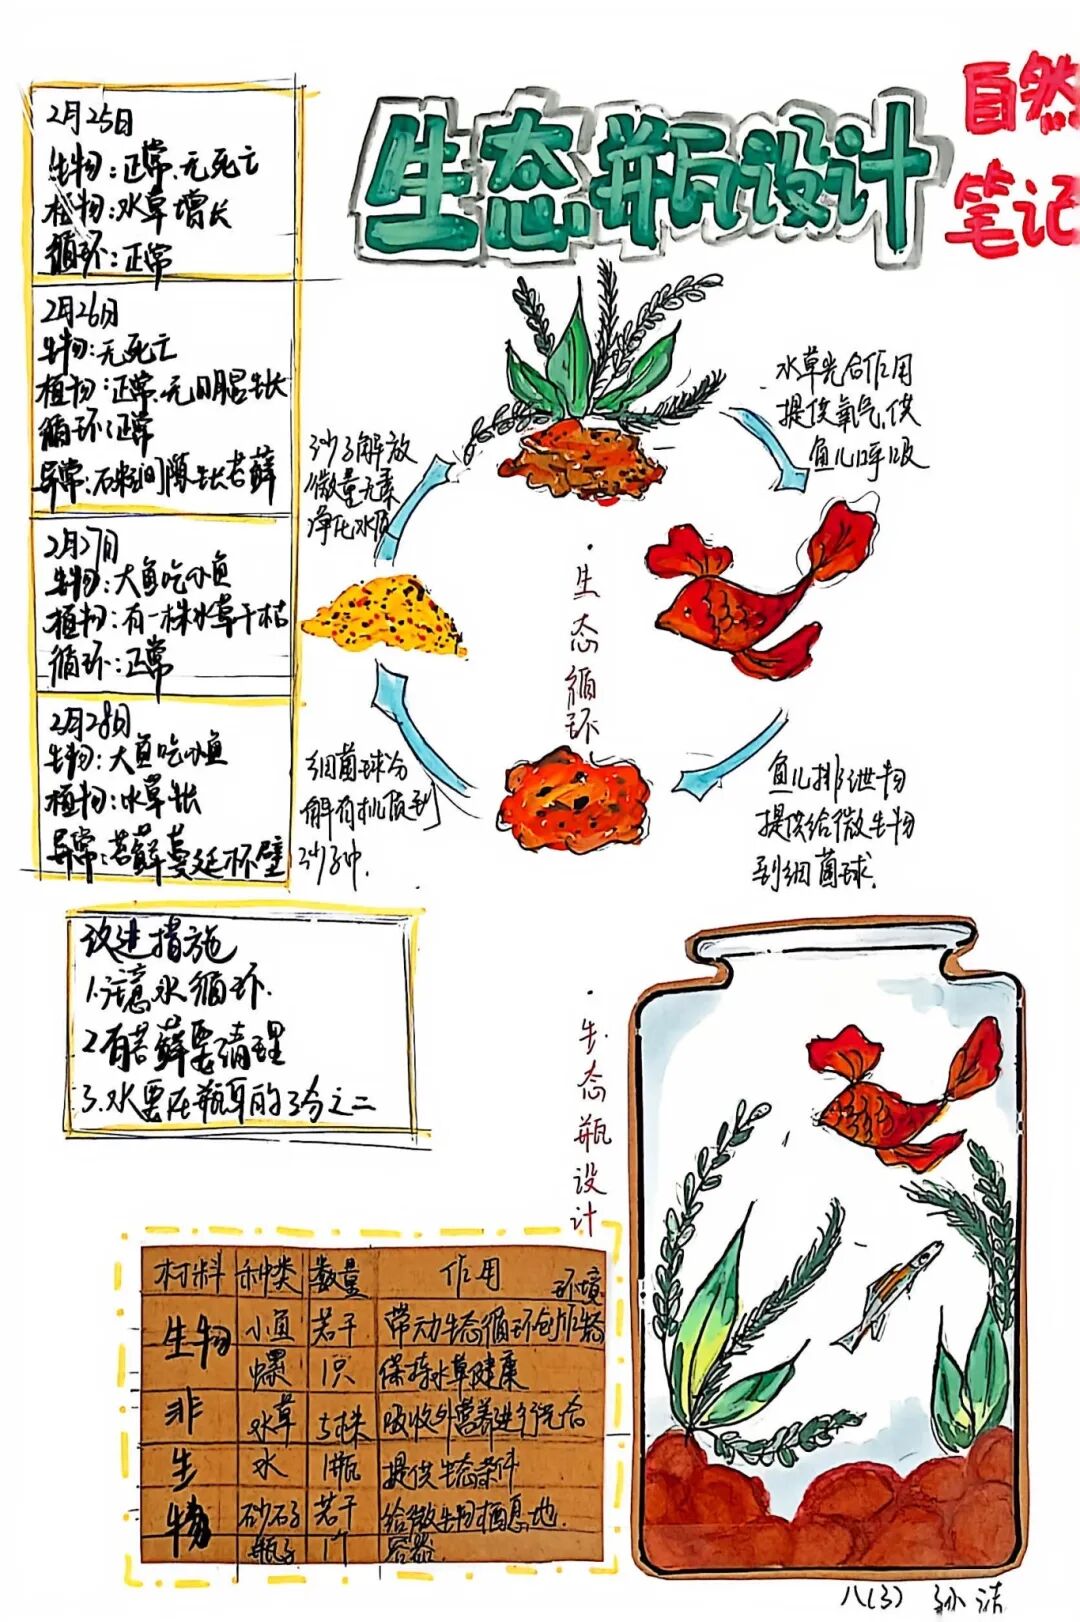 生态瓶设计
自然
笔记
2月25日
生物:正常.无死亡
植物:水草增长
循环:正常
2月26日
生物:无死亡
植物:正常.无明显生长
循环:正常
异常:石粒间隙生长苔藓
2月27日
生物:大鱼吃小鱼
植物:有一株水草干枯
循环:正常
2月28日
生物:大鱼吃小鱼
植物:水草长
异常:苔藓蔓延杯壁
改进措施
1.注意水循环.
2.有苔藓要清理
3.水要在瓶耳的3分之二
水草光合作用
提供氧气.供
鱼儿呼吸
沙子解放
微量元素
净化水质
·生态循环
细菌球分
解有机质到
沙子中.
鱼儿排泄物
提供给微生物
到细菌球.
·生态瓶设计
材料 种类 数量 作用
生物 小鱼 若干 带动生态循环创作生态
环境
螺 1只 保持水草健康
非 水草 5株 吸收外营养进行光合
生 水 1瓶 提供生态条件
物 砂石子 若干 给微生物栖息地.
瓶子 1个 容器.
八(3) 孙洁